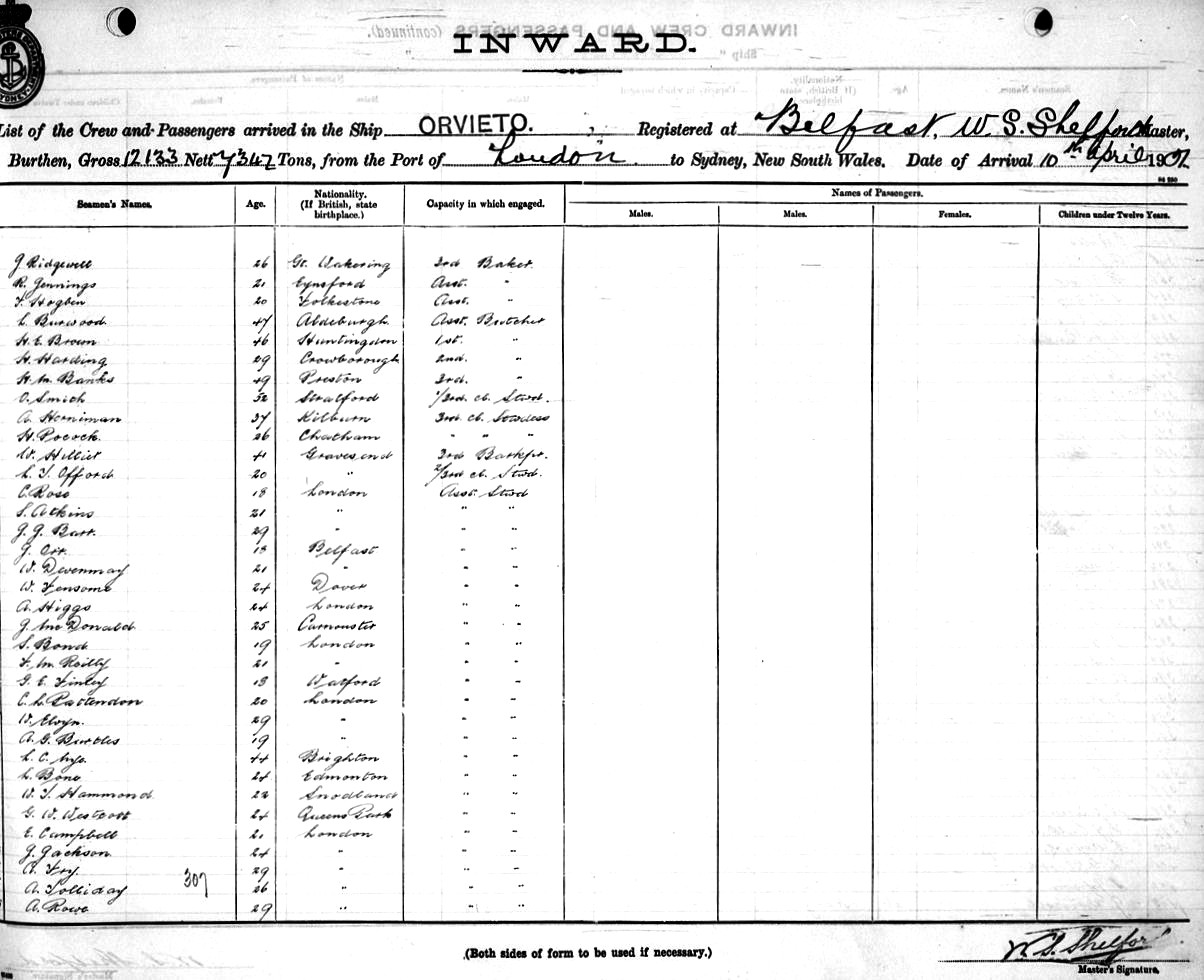 INWARD.
List of the Crew and Passengers arrived in the Ship ORVIETO. , Registered at Belfast, W. S. Shelford Master,
Burthen, Gross 12133 Nett 7342 Tons, from the Port of London to Sydney, New South Wales. Date of Arrival 10th April 19
Names of Passengers.
Seamen's Names. Age. Nationality. (If British, state birthplace.) Capacity in which engaged. Males. Males. Females. Children under Twelve Years.
J Ridgewell 26 Gt. Wakering 3rd Baker.
R. Jennings 21 Eynsford Asst. "
F. Hogben 20 Folkestone Asst. "
L. Burwood. 47 Aldeburgh. Asst. Butcher
H. E. Brown 46 Huntingdon 1st. "
H. Harding 29 Crowborough 2nd. "
H. M. Banks 49 Preston 3rd. "
O. Smith 32 Stratford 1/3rd. cl. Stwd.
A. Herniman 37 Kilburn 3rd. cl. Stwdess
H. Pocock. 26 Chatham " " "
W. Hillier 41 Gravesend 3rd Barkpr.
L. J. Offord 20 " 2/3rd cl. Stwd.
C. Rose 18 London Asst. Stwd
S. Atkins 21 " " "
J. J. Barr. 29 " " "
J. Orr. 18 Belfast " "
W. Devenmay 21 " " "
W. Fensome 24 Dover " "
A. Higgs 24 London " "
J. McDonald 25 Carnouster " "
S. Bond 19 London " "
F. M. Reilly 21 " " "
G. E. Finley 18 Watford " "
C. L. Pattendon 20 London " "
W. Elvyn. 29 " " "
A. G. Burtles 19 " " "
L. C. Nye. 44 Brighton " "
L. Bone 24 Edmonton " "
W. J. Hammond. 22 Snodland " "
G. W. Westcott 24 Queens Park " "
E. Campbell 21 London " "
J. Jackson 24 " " "
A. Fry. 29 " " "
307
A. Tolliday 26 " " "
A. Rowe 29 " " "
(Both sides of form to be used if necessary.)
W. S. Shelford
Master's Signature,